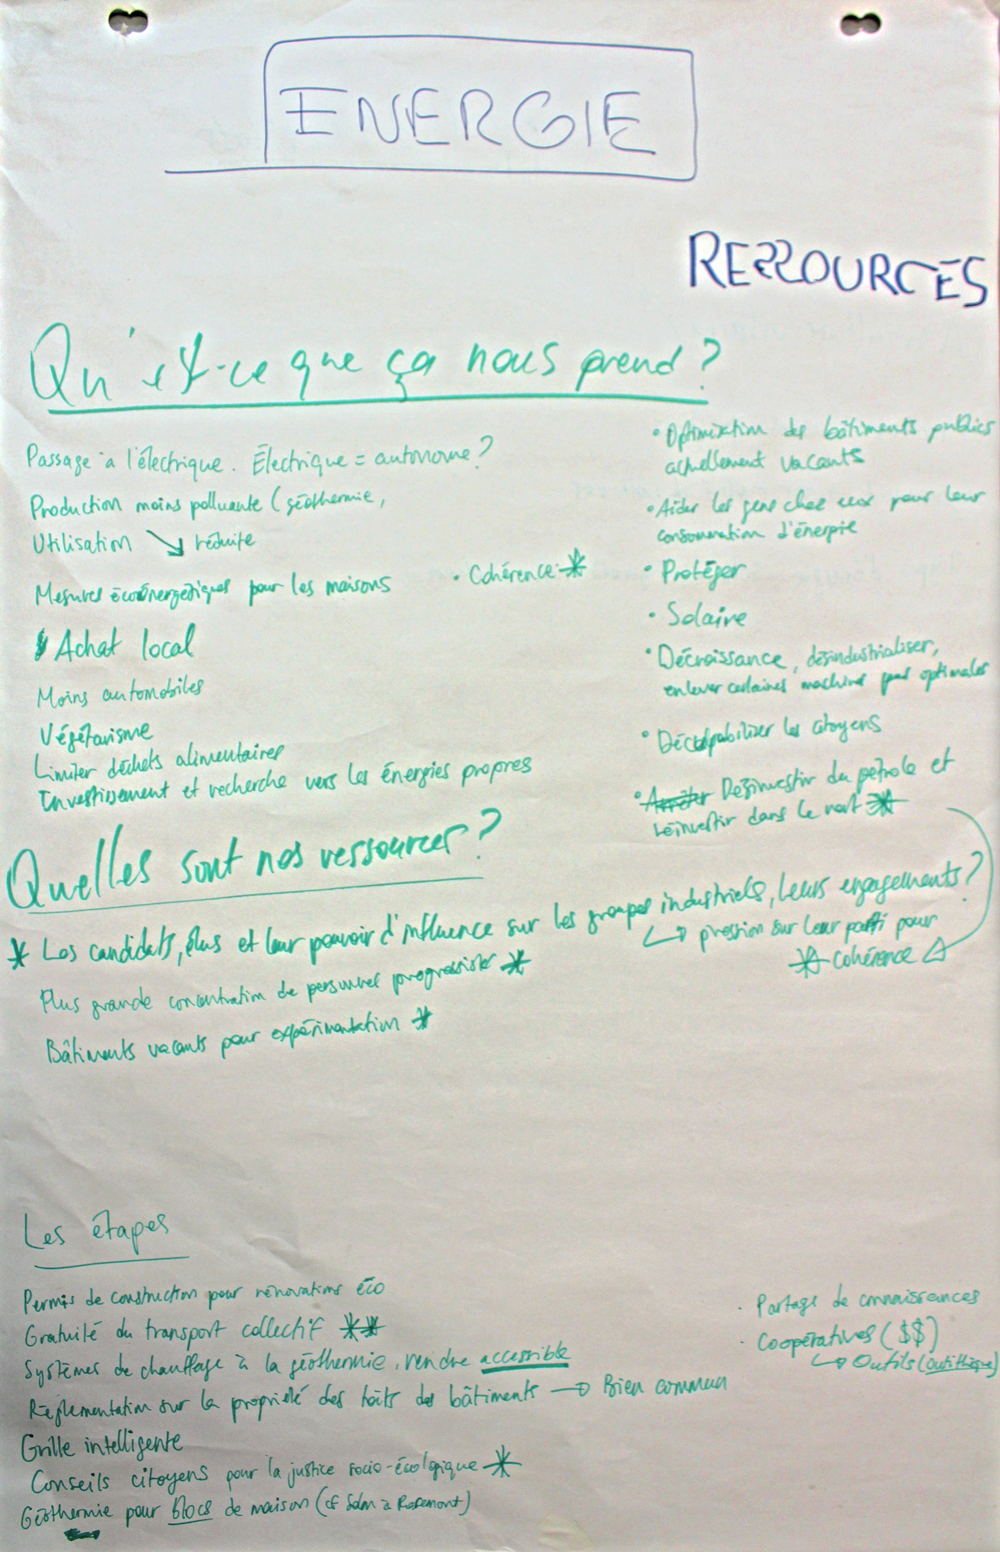 ENERGIE
RESSOURCES
Qu'est-ce que ça nous prend ?
Passage à l'électrique. Électrique = autonome ?
Production moins polluante (géothermie,
Utilisation ↘ réduite
Mesures écoénergétiques pour les maisons
• Cohérence *
Achat local
Moins automobiles
Végétarisme
Limiter déchets alimentaires
Investissement et recherche vers les énergies propres
• Optimisation des bâtiments publics
actuellement vacants
• Aider les gens chez eux pour leur
consommation d'énergie
• Protéger
• Solaire
• Décroissance, désindustrialiser,
enlever certaines machines pas optimales
• Déculpabiliser les citoyens
• Arrêter Désinvestir du pétrole et
réinvestir dans le vert *
Quelles sont nos ressources ?
* Les candidats, élus et leur pouvoir d'influence sur les groupes industriels, leurs engagements ?
↳ pression sur leur parti pour
* cohérence
Plus grande concentration de personnes progressistes *
Bâtiments vacants pour expérimentation *
Les étapes
Permis de construction pour rénovations éco
Gratuité du transport collectif **
Systèmes de chauffage à la géothermie, rendre accessible
Règlementation sur la propriété des toits des bâtiments → Bien commun
Grille intelligente
Conseils citoyens pour la justice socio-écologique *
Géothermie pour blocs de maison (cf à Rosemont)
• Partage de connaissances
• Coopératives ($$)
↳ Outils (outithèque)